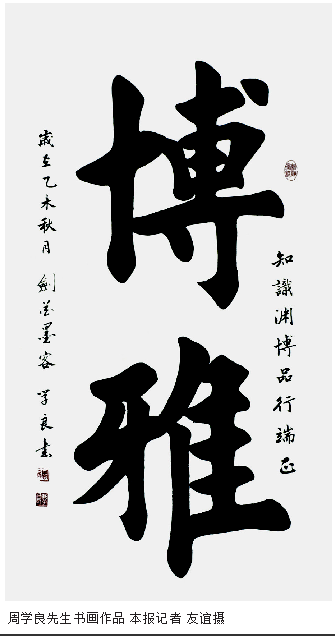 知識渊博品行端正
博雅
歲在乙未秋月 劍墨客 学良書
周学良先生书画作品 本报记者 友谊摄